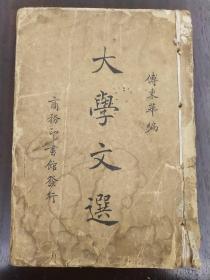 傅東華編
大學文選
商務印書館發行